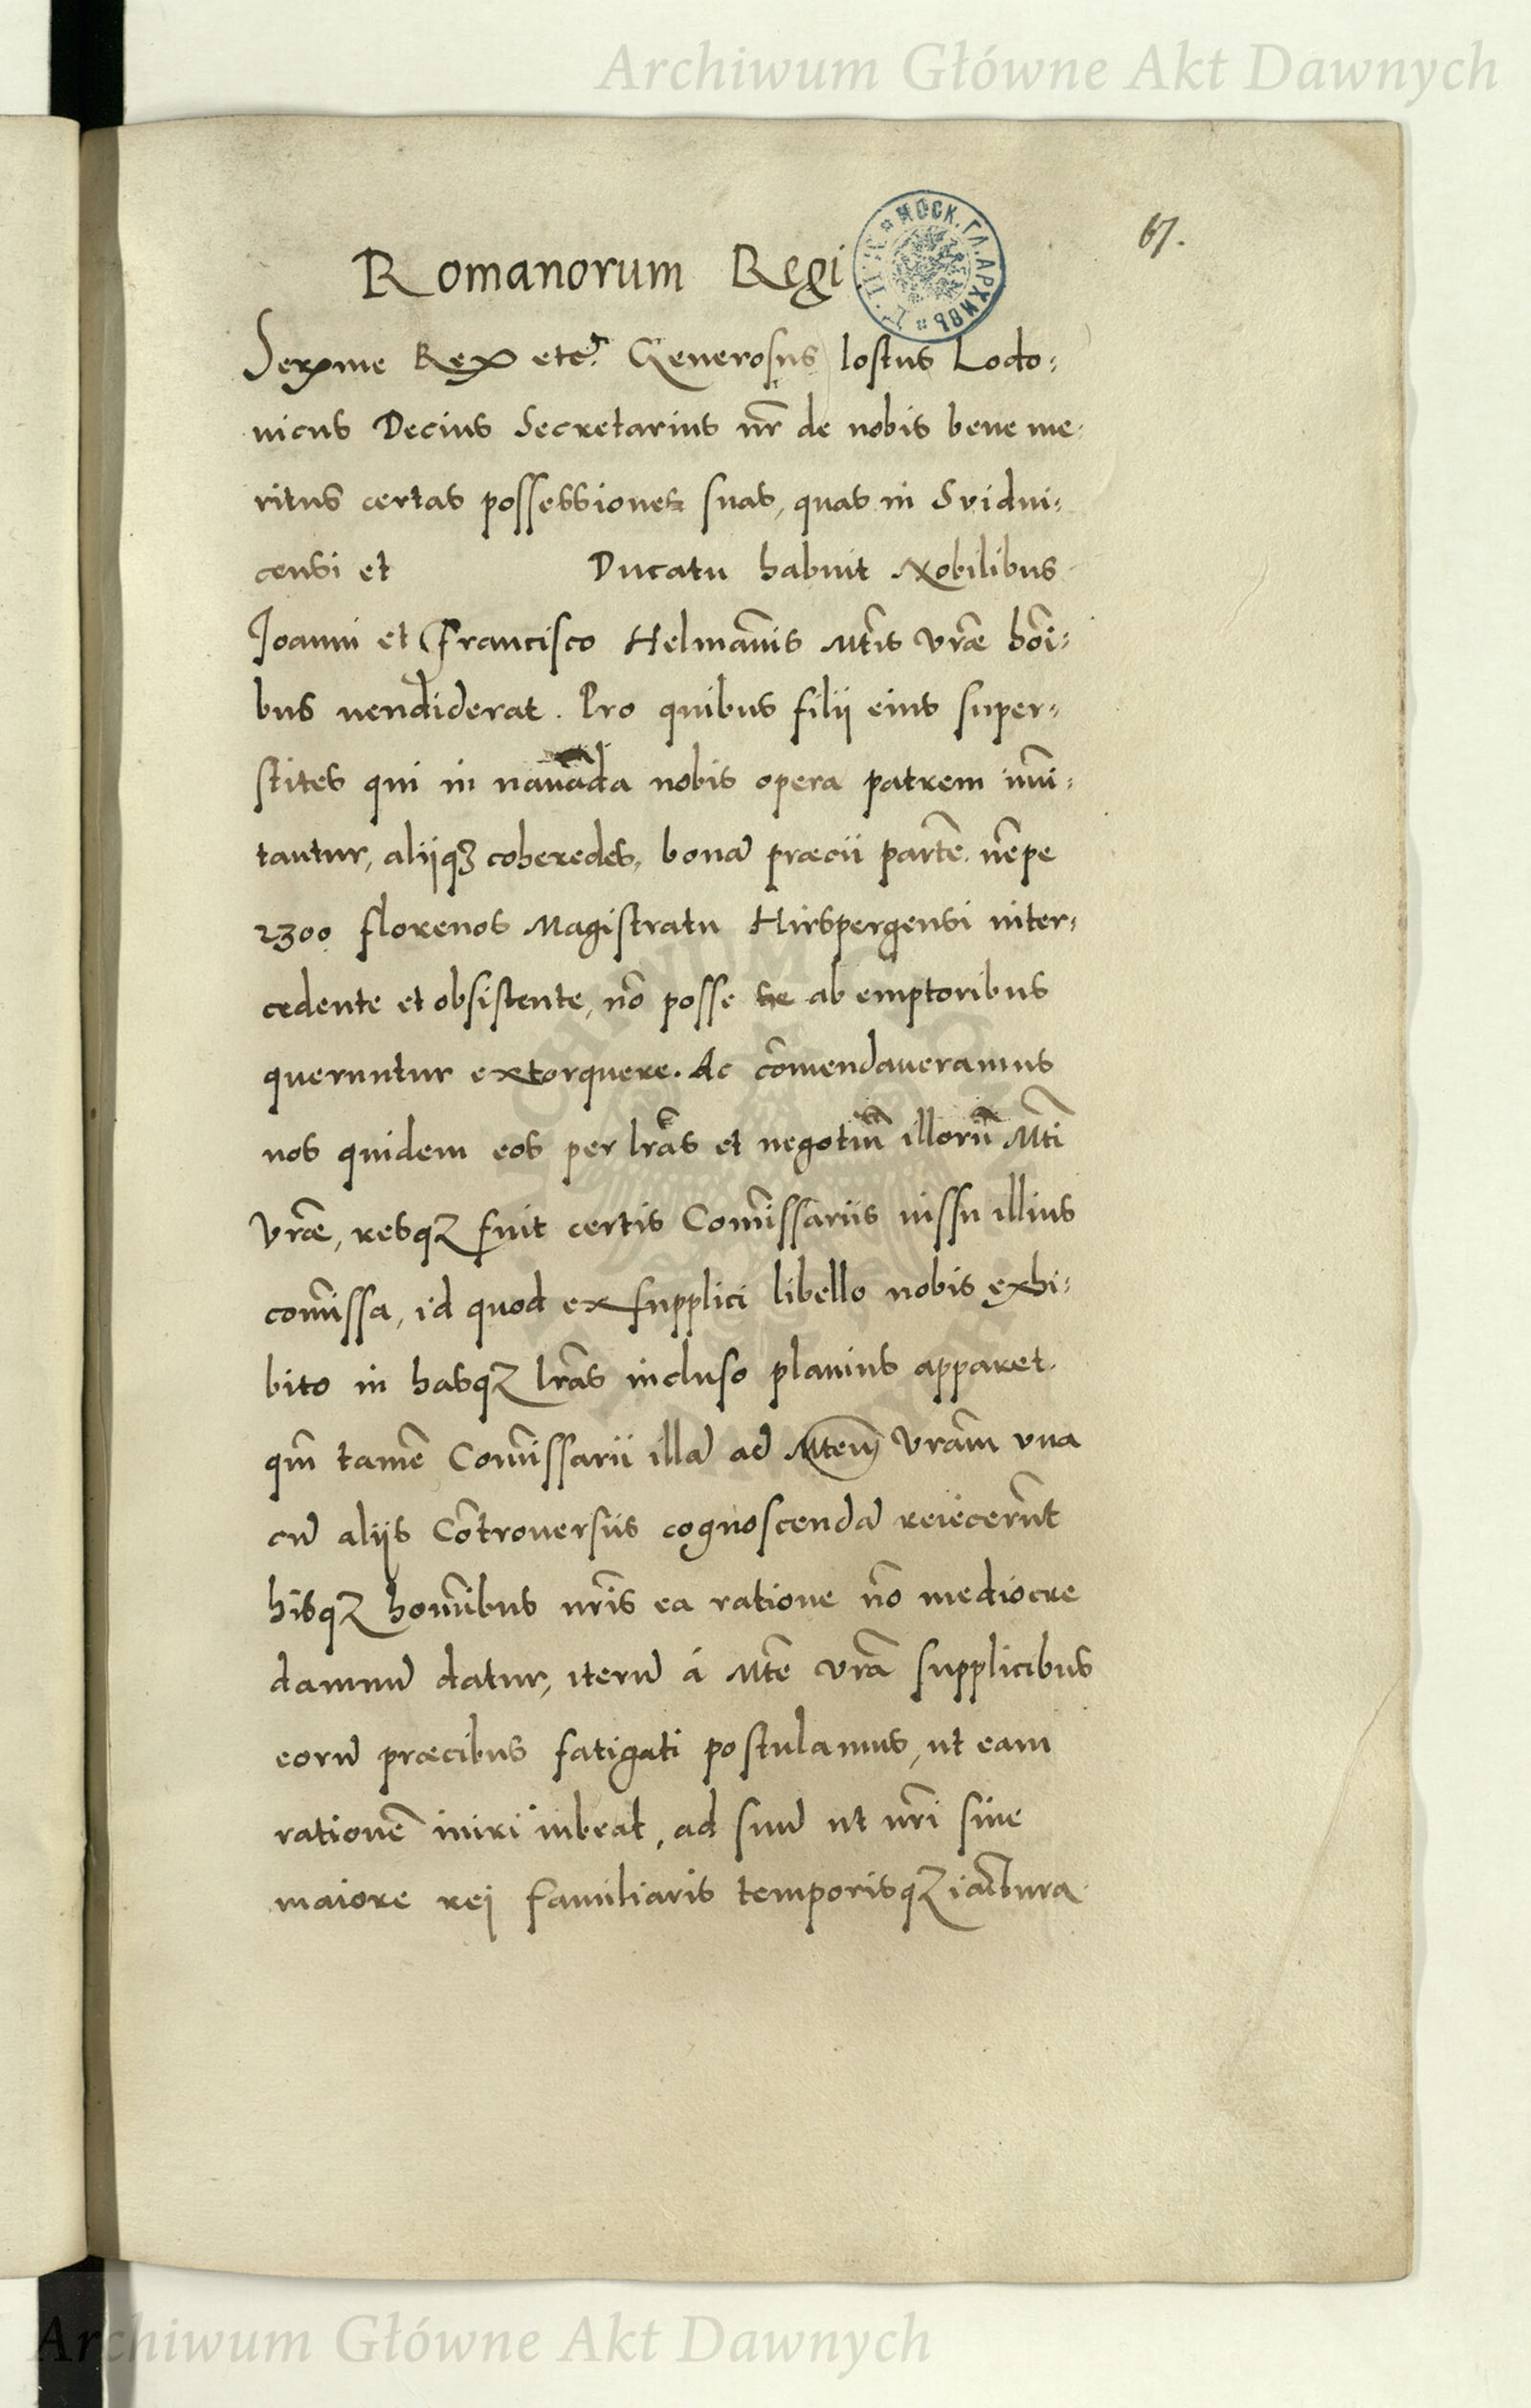 Archiwum Główne Akt Dawnych
67.
Romanorum Regi
МОСК. ГЛ. АРХИВЪ
Serx̄me Rex etc. Generosus Iostus Lodo:
uicus Decius Secretarius nr̄ de nobis bene me:
ritus certas possessiones suas, quas in Svidni:
censi et Ducatu habuit Nobilibus
Joanni et Francisco Helman̄is Mtis vr̄ae hoī:
bus uendiderat. Pro quibus filii eius super:
stites qui in nauāda nobis opera patrem imi:
tantur, aliiqꝫ coheredes, bonā praecii partē nēpe
2300 florenos Magistratu Hirspergensi inter:
cedente et obsistente, nō posse se ab emptoribus
queruntur extorquere. Ac cōmendaueramus
nos quidem eos per lr̄as et negotiū illorū Mti
vr̄ae, resqꝫ fuit certis Com̄issariis iussu illius
com̄issa, id quod ex supplici libello nobis exhi:
bito in hasqꝫ lr̄as incluso planius apparet.
qm̄ tamē Com̄issarii illā ad Mtem Vrām vna
cū aliis Cōtrouersiis cognoscendā reiecerūt
hisqꝫ homībus nr̄is ea ratione nō mediocre
damnū datur, iterū á Mtē vrā supplicibus
eorū praecibus fatigati postulamus, ut eam
rationē iniri iubeat, ad suū ut nr̄i sine
maiore rei familiaris temporisqꝫ iactura
Archiwum Główne Akt Dawnych